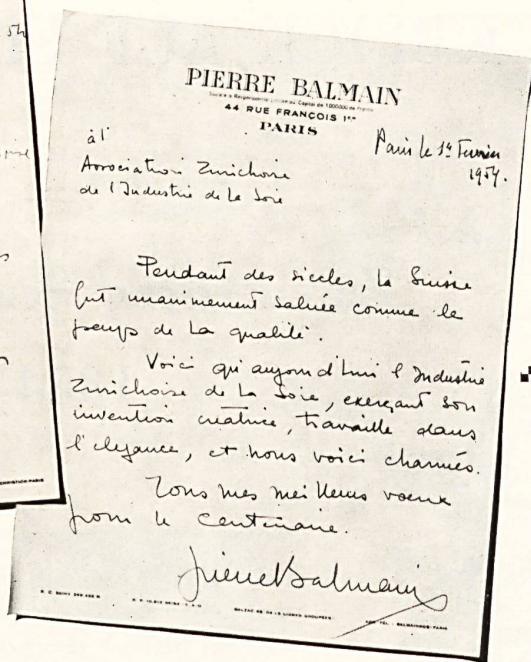 PIERRE BALMAIN
Société à Responsabilité Limitée au Capital de 1.000.000 de Francs
44 RUE FRANÇOIS 1er
PARIS
Paris le 1er Fevrier
1954.
à l'
Association Zurichoise
de l'Industrie de La Soie
Pendant des siecles, la Suisse
fut unanimement saluée comme le
pays de la qualité.
Voici qu'aujourd'hui l'Industrie
Zurichoise de La Soie, exerçant son
invention créatrice, travaille dans
l'elegance, et nous voici charmés.
Tous mes meilleurs voeux
pour le Centenaire.
Pierre Balmain